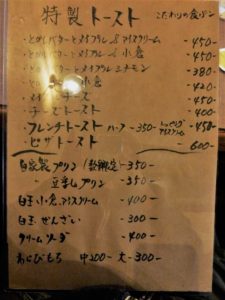 特製トースト こだわりの食パン
・とかしバターとメイプル&アイスクリーム -450-
・とかしバターとメイプル 小倉 -450-
・とかしバターとメイプルシナモン -380-
小倉 -420
チーズ -450
・チーズトースト -400
・フレンチトースト ハーフ -350- トッピング アイスクリーム -450
・ピザトースト - 600-
自家製プリン (数限定) -350-
〃 豆乳プリン -350-
白玉小倉アイスクリーム -400-
白玉ぜんざい -300-
クリームソーダ -400-
わらびもち 中200- 大-300-